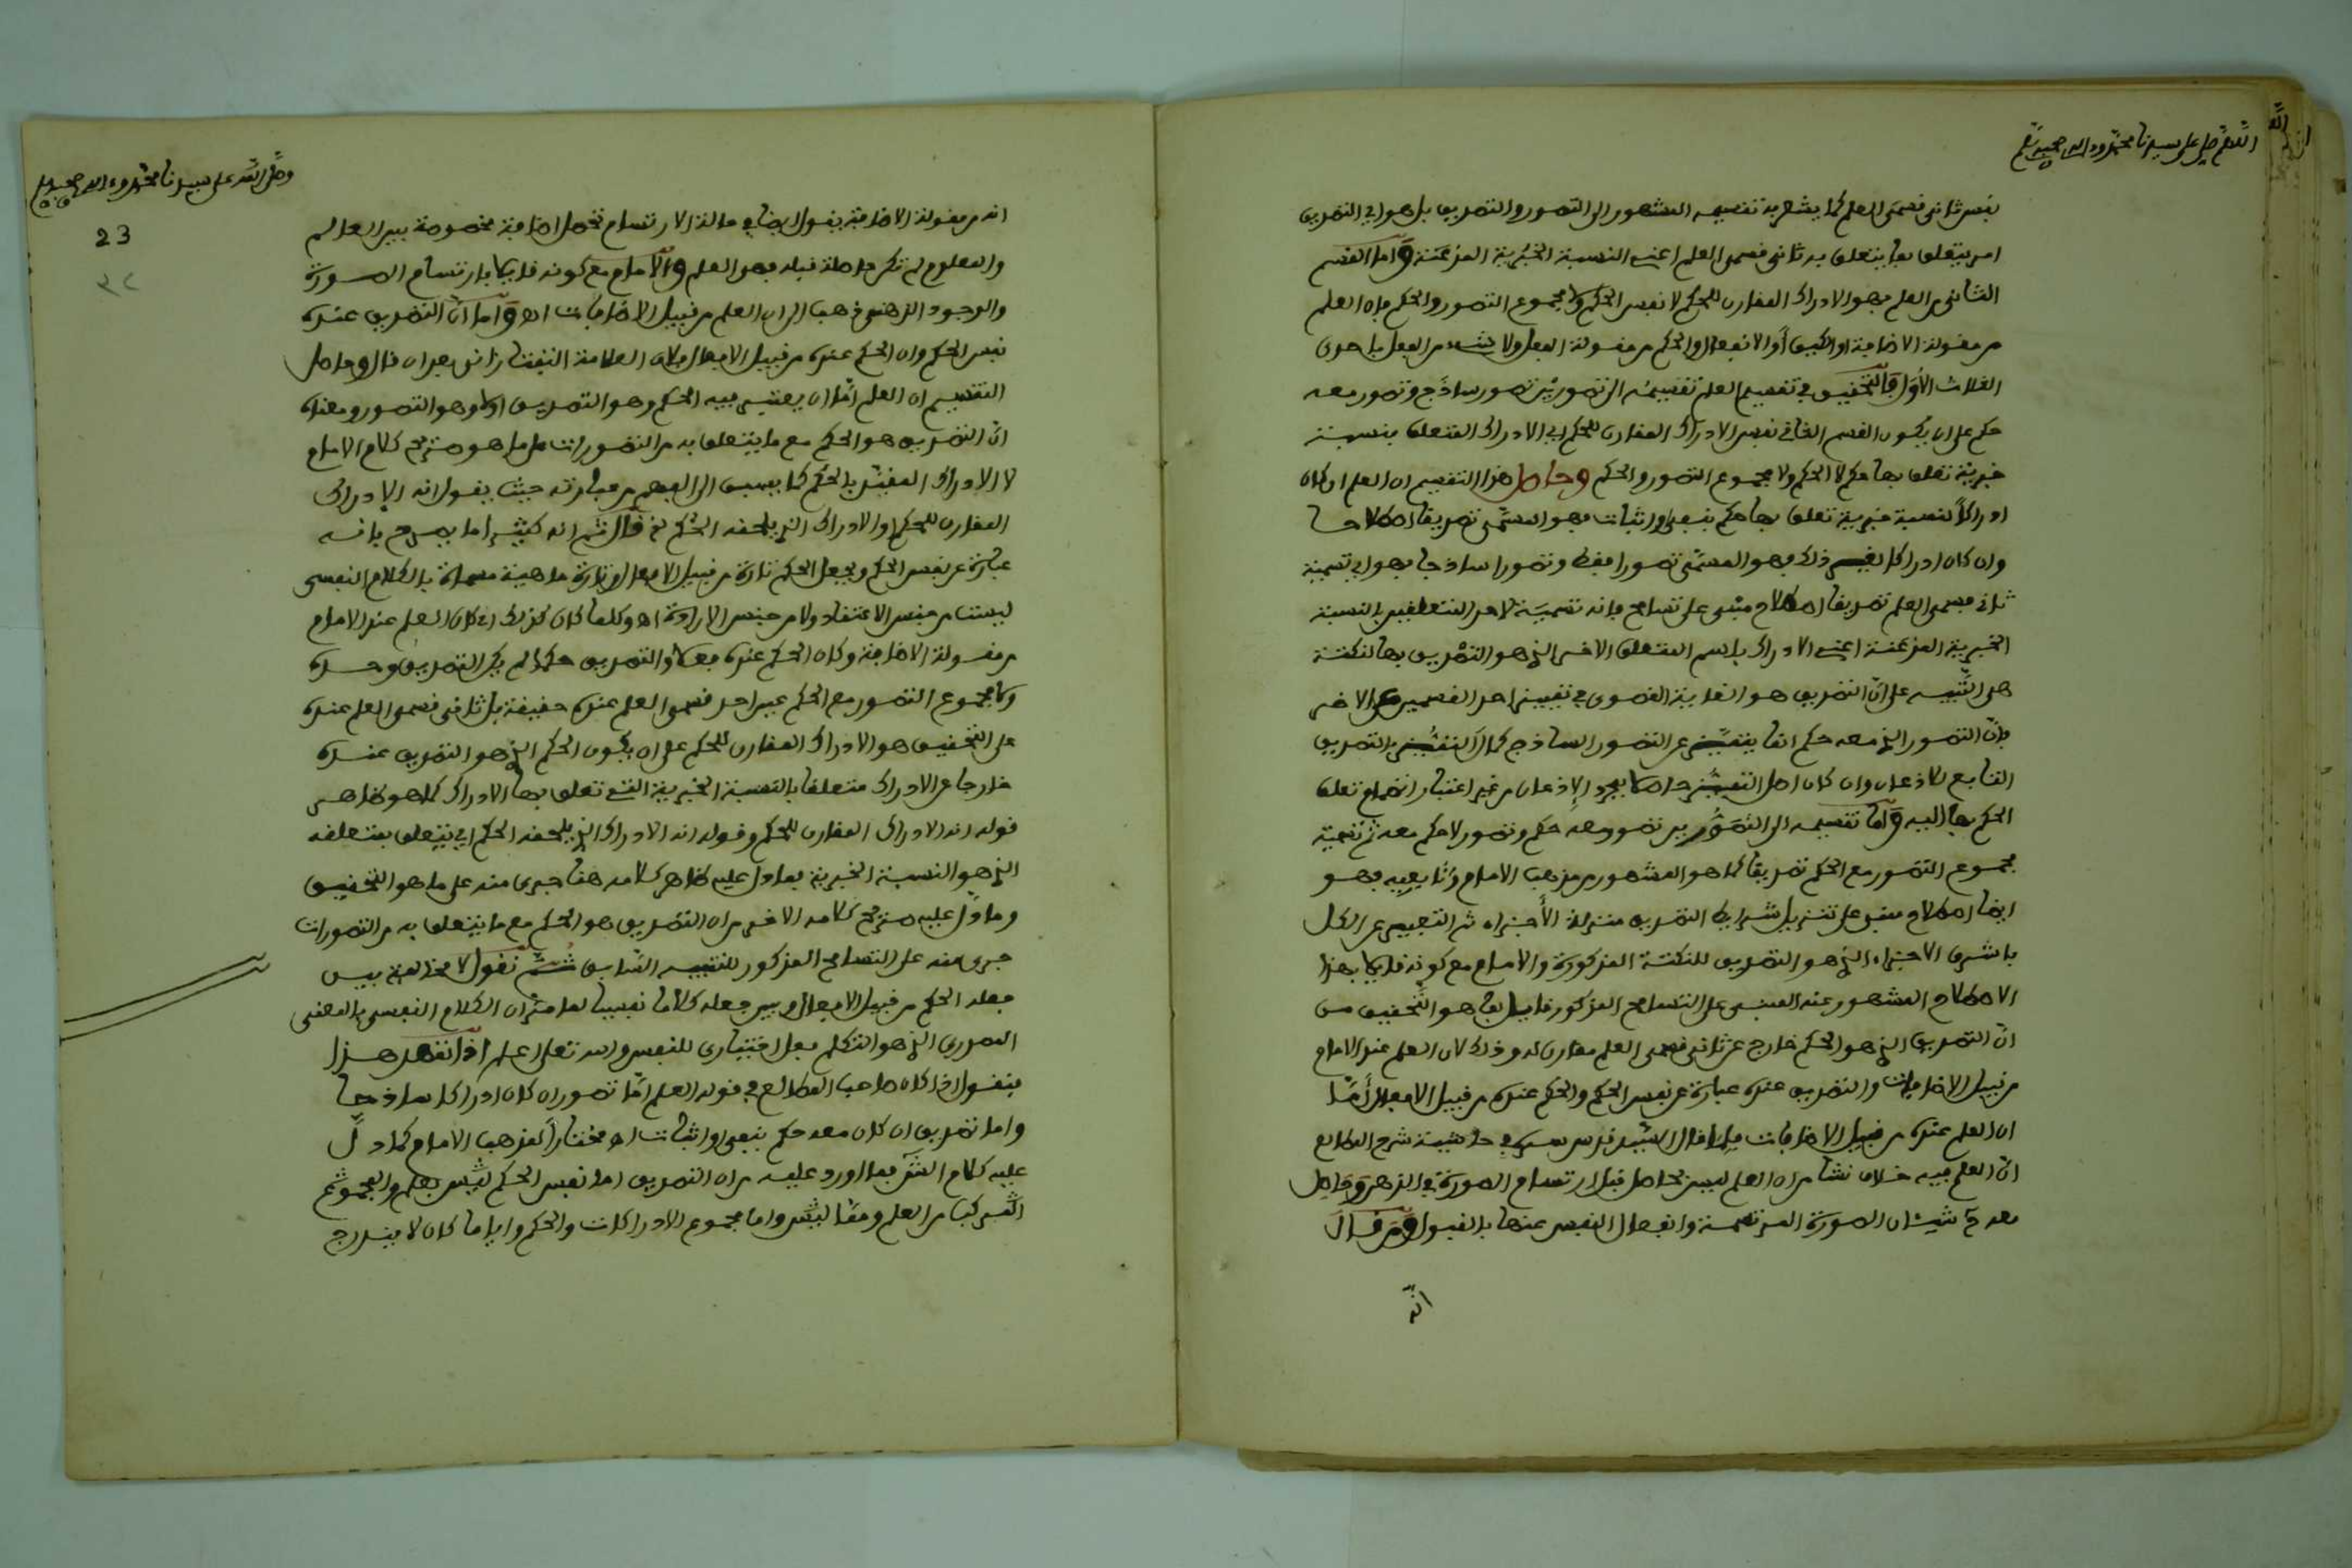 اللهم صل على سيدنا محمد وءاله وصحبه وسلم
نفس ثاني قسمي العلم كما يشعر به تقسيمه المشهور الى التصور والتصديق بل هو اي التصديق
امر يتعلق بما يتعلق به ثاني قسمي العلم اعني النسبة الخبرية المذعنة واما القسم
الثاني من العلم فهو الادراك المقارن للحكم لا نفس الحكم ولا مجموع التصور والحكم فان العلم
من مقولة الاضافة او الكيف أو الانفعال والحكم من مقولة الفعل ولا شيء من الفعل باحدى
الثلاث الأول والتحقيق في تقسيم العلم تقسيمه الى تصورين تصور ساذج وتصور معه
حكم على ان يكون القسم الثاني نفس الادراك المقارن للحكم اي الادراك المتعلق بنسبة
خبرية تعلق بها حكم لا الحكم ولا مجموع التصور والحكم وحاصل هذا التقسيم ان العلم ان كان
ادراكا لنسبة خبرية تعلق بها حكم بنفي او اثبات فهو المسمى تصديقا اصطلاحا
وان كان ادراكا لغير ذلك فهو المسمى تصورا فقط وتصورا ساذجا فهو اي تسمية
ثاني قسمي العلم تصديقا اصطلاح مبني على تسامح فانه تسمية لاحد المتعلقين بالنسبة
الخبرية المذعنة اعني الادراك باسم المتعلق الاخر الذي هو التصديق بها لنكتة
هي التنبيه على ان التصديق هو الغاية القصوى في تمييز احد القسمين عن الاخر
فان التصور الذي معه حكم انما يتميز عن التصور الساذج كمال التميز بالتصديق
التابع للاذعان وان كان اصل التمييز حاصلا بمجرد الاذعان من غير اعتبار انضمام تعلق
الحكم بها اليه واما تقسيمه الى التصورين تصور معه حكم وتصور لا حكم معه ثم تسمية
مجموع التصور مع الحكم تصديقا كما هو المشهور من مذهب الامام وتابعيه فهو
ايضا اصطلاح مبني على تنزيل شرايط التصديق منزلة الأجزاء ثم التعبير عن الكل
باشرف الاجزاء الذي هو التصديق للنكتة المذكورة والامام مع كونه قايلا بهذا
الاصطلاح المشهور عنه المبني على التسامح المذكور قايل بما هو التحقيق من
ان التصديق الذي هو الحكم خارج عن ثاني قسمي العلم مقارن له وذلك لان العلم عند الامام
من قبيل الاضافيات والتصديق عنده عبارة عن نفس الحكم والحكم عنده من قبيل الافعال أما
ان العلم عنده من قبيل الاضافيات فلما قال السيد قدس سره في حاشية شرح المطالع
ان العلم فيه خلاف نشا من ان العلم ليس بحاصل قبل ارتسام الصورة في الذهن وحاصل
معه شيئان الصورة المرتسمة وانفعال النفس عنها بالقبول ومن قال
انه
وصلى الله على سيدنا محمد وءاله وصحبه وسلم
23
انه من مقولة الاضافة يقول ايضا في حالة الارتسام تحصل اضافة مخصوصة بين العالم
والمعلوم لم تكن حاصلة قبله فهو العلم والامام مع كونه قايلا بارتسام الصورة
والوجود الذهني ذهب الى ان العلم من قبيل الاضافيات اه واما ان التصديق عنده
نفس الحكم وان الحكم عنده من قبيل الافعال فلان العلامة التفتازاني بعد ان قال وحاصل
التقسيم ان العلم اما ان يعتبر فيه الحكم وهو التصديق اولا وهو التصور ومعناه
ان التصديق هو الحكم مع ما يتعلق به من التصورات على ما هو صريح كلام الامام
لا الادراك المقيد بالحكم كما يسبق الى الفهم من عبارته حيث يقول انه الادراك
المقارن للحكم او الادراك الذي يلحقه الحكم قال ثم انه كثيرا ما يصرح بانه
عبارة عن نفس الحكم ويجعل الحكم تارة من قبيل الافعال وتارة ماهية مسماة بالكلام النفسي
ليست من جنس الاعتقاد ولا من جنس الارادة اه وكلما كان كذلك اي كان العلم عند الامام
من مقولة الاضافة وكان الحكم عنده فعلا والتصديق حكما لم يكن التصديق وحده
ولا مجموع التصور مع الحكم عين احد قسمي العلم عنده حقيقة بل ثاني قسمي العلم عنده
على التحقيق هو الادراك المقارن للحكم على ان يكون الحكم الذي هو التصديق عنده
خارجا عن الادراك متعلقا بالنسبة الخبرية التي تعلق بها الادراك كما هو ظاهر
قوله انه الادراك المقارن للحكم وقوله انه الادراك الذي يلحقه الحكم اي يتعلق بمتعلقه
الذي هو النسبة الخبرية فما دل عليه ظاهر كلامه هنا جرى منه على ما هو التحقيق
وما دل عليه صريح كلامه الاخر من ان التصديق هو الحكم مع ما يتعلق به من التصورات
جرى منه على التسامح المذكور للتنبيه السابق ثم نقول لا مخالفة بين
جعله الحكم من قبيل الافعال وبين جعله كلاما نفسيا لما مر ان الكلام النفسي بالمعنى
المصدري الذي هو التكلم فعل اختياري للنفس والله تعالى اعلم اذا تمهد هذا
فنقول اذا كان صاحب المطالع في قوله العلم اما تصور ان كان ادراكا ساذجا
واما تصديق ان كان معه حكم بنفي او اثبات اه مختارا لمذهب الامام كما دل
عليه كلام الشرح فما اورد عليه من ان التصديق اما نفس الحكم ليس بعلم والمجموع
المركب من العلم وما ليس واما مجموع الادراكات والحكم وايا ما كان لا يندرج